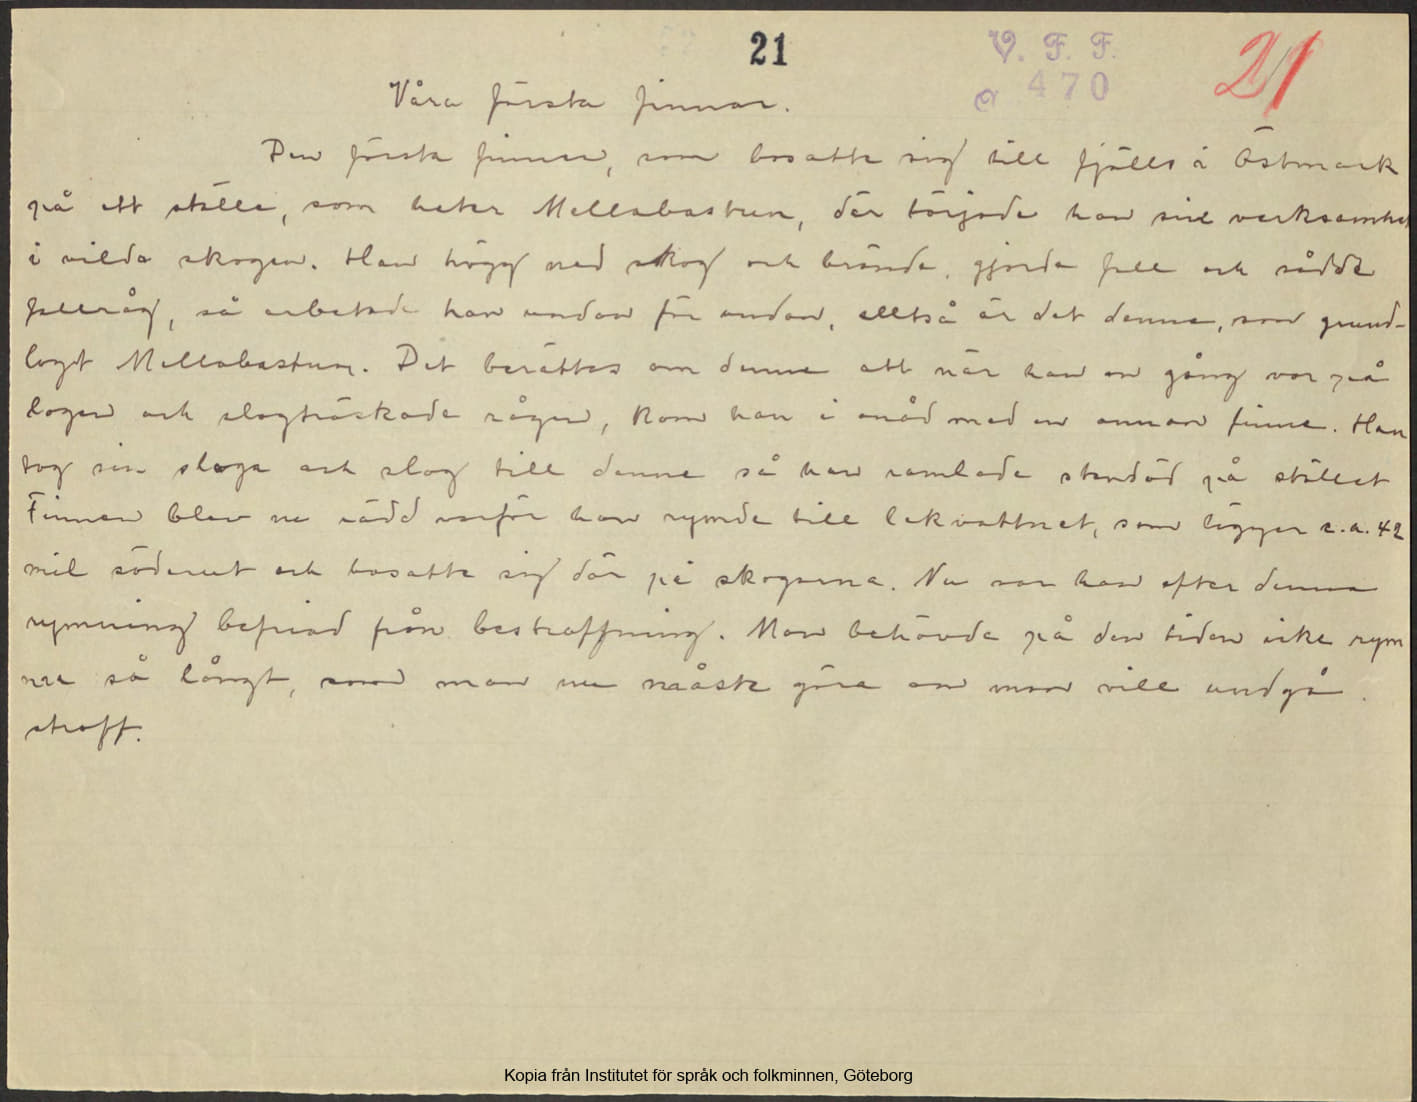 21
V. F. F.
470
21
Våra första finnar.
Den första finnen, som bosatte sig till fjälls i Östmark
på ett ställe, som heter Mellabastun, där började han sin verksamhet
i vilda skogen. Han högg ned skog och brände, gjorde fall och sådde
fallråg, så arbetade han undan för undan, alltså är det denne, som grund-
lagt Mellabastun. Det berättas om denne att när han en gång var på
logen och slagtröskade rågen, kom han i onåd med en annan finne. Han
tog sin slaga och slog till denne så han ramlade stendöd på stället
Finnen blev nu rädd varför han rymde till Lekvattnet, som ligger c.a. 42
mil söderut och bosatte sig där på skogarna. Nu var han efter denna
rymning befriad från bestraffning. Man behövde på den tiden icke rym
ma så långt, som man nu måste göra om man vill undgå
straff.
Kopia från Institutet för språk och folkminnen, Göteborg